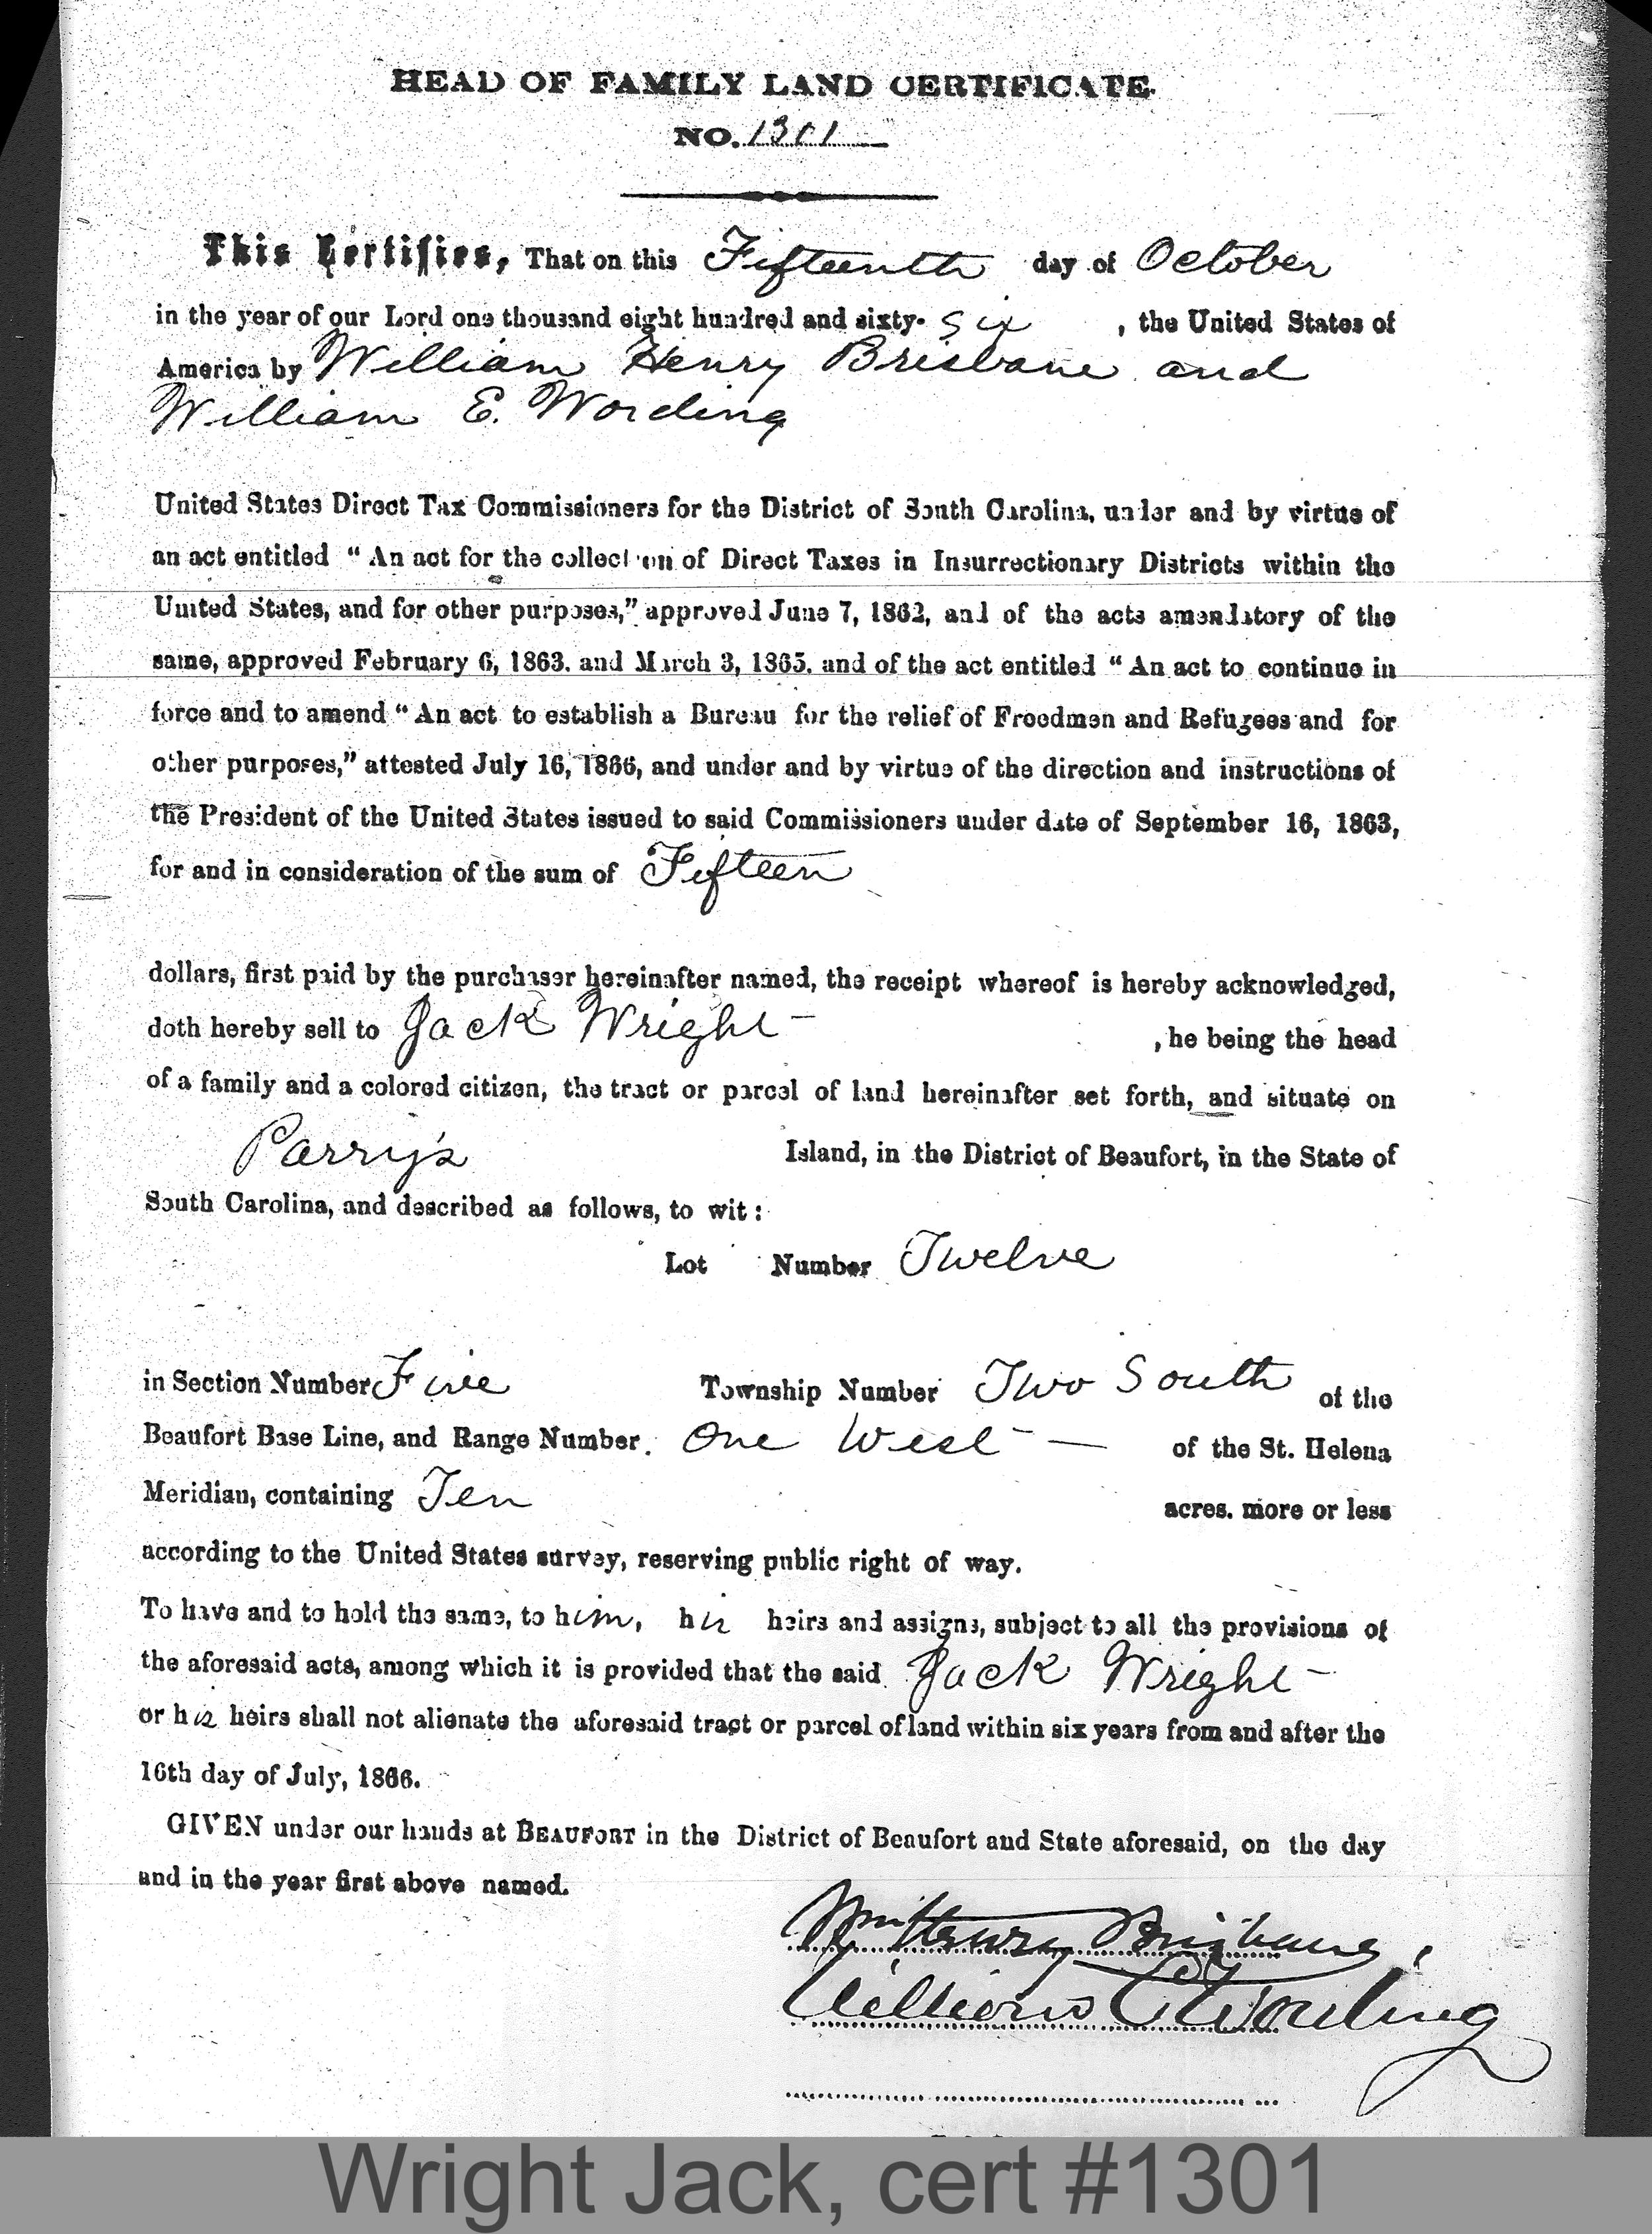 HEAD OF FAMILY LAND CERTIFICATE.
NO. 1301
This Certifies, That on this Fifteenth day of October
in the year of our Lord one thousand eight hundred and sixty- six , the United States of
America by William Henry Brisbane and
William E. Wording
United States Direct Tax Commissioners for the District of South Carolina, under and by virtue of
an act entitled “ An act for the collection of Direct Taxes in Insurrectionary Districts within the
United States, and for other purposes,” approved June 7, 1862, and of the acts amendatory of the
same, approved February 6, 1863. and March 3, 1865. and of the act entitled “ An act to continue in
force and to amend “ An act to establish a Bureau for the relief of Freedmen and Refugees and for
other purposes,” attested July 16, 1866, and under and by virtue of the direction and instructions of
the President of the United States issued to said Commissioners under date of September 16, 1863,
for and in consideration of the sum of Fifteen
dollars, first paid by the purchaser hereinafter named, the receipt whereof is hereby acknowledged,
doth hereby sell to Jack Wright , he being the head
of a family and a colored citizen, the tract or parcel of land hereinafter set forth, and situate on
Parry's Island, in the District of Beaufort, in the State of
South Carolina, and described as follows, to wit :
Lot Number Twelve
in Section Number Five Township Number Two South of the
Beaufort Base Line, and Range Number. One West — of the St. Helena
Meridian, containing Ten acres. more or less
according to the United States survey, reserving public right of way.
To have and to hold the same, to him, his heirs and assigns, subject to all the provisions of
the aforesaid acts, among which it is provided that the said Jack Wright
or his heirs shall not alienate the aforesaid tract or parcel of land within six years from and after the
16th day of July, 1866.
GIVEN under our hands at BEAUFORT in the District of Beaufort and State aforesaid, on the day
and in the year first above named.
Wm Henry Brisbane,
William E. Wording
Wright Jack, cert #1301